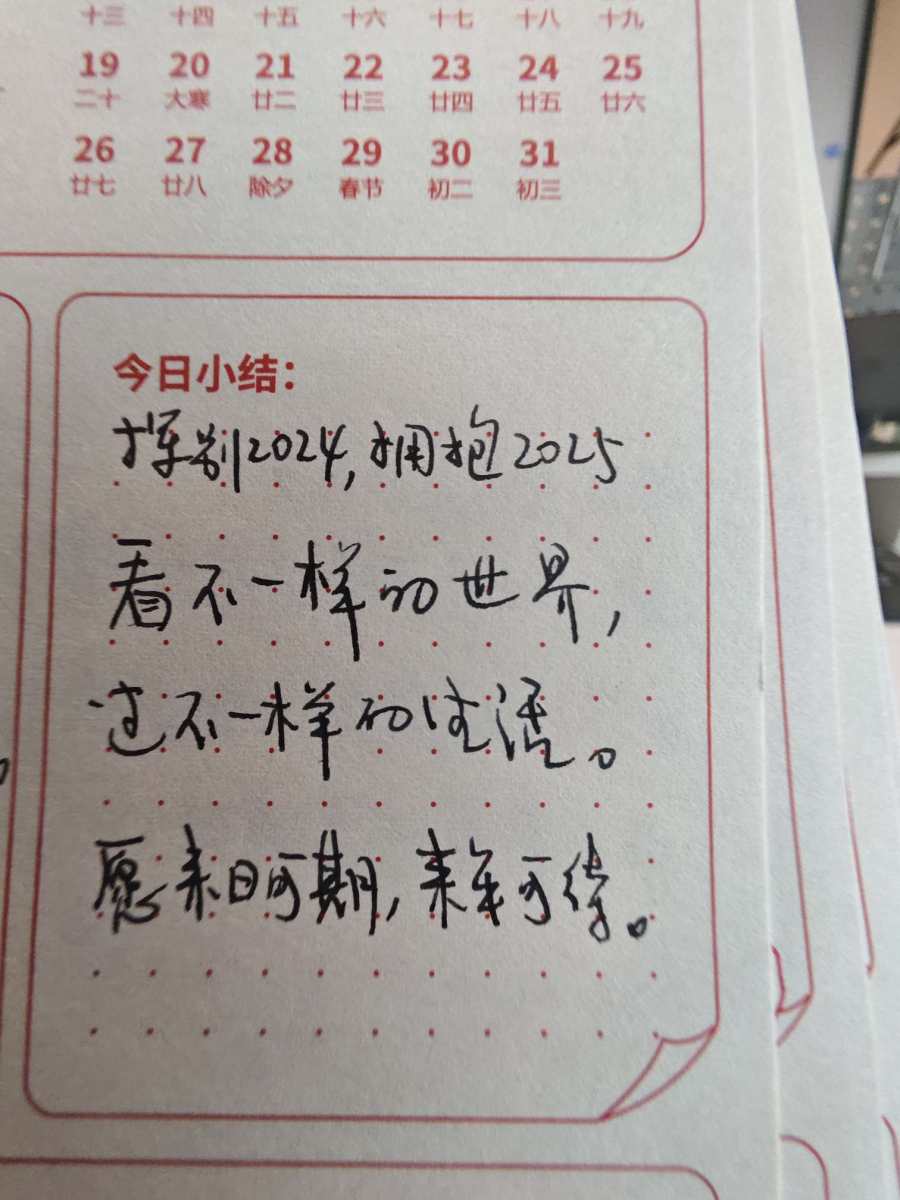 十三 十四 十五 十六 十七 十八 十九
19 20 21 22 23 24 25
二十 大寒 廿二 廿三 廿四 廿五 廿六
26 27 28 29 30 31
廿七 廿八 除夕 春节 初二 初三
今日小结：
挥别2024，拥抱2025
看不一样的世界，
过不一样的生活。
愿来日可期，来年可待。